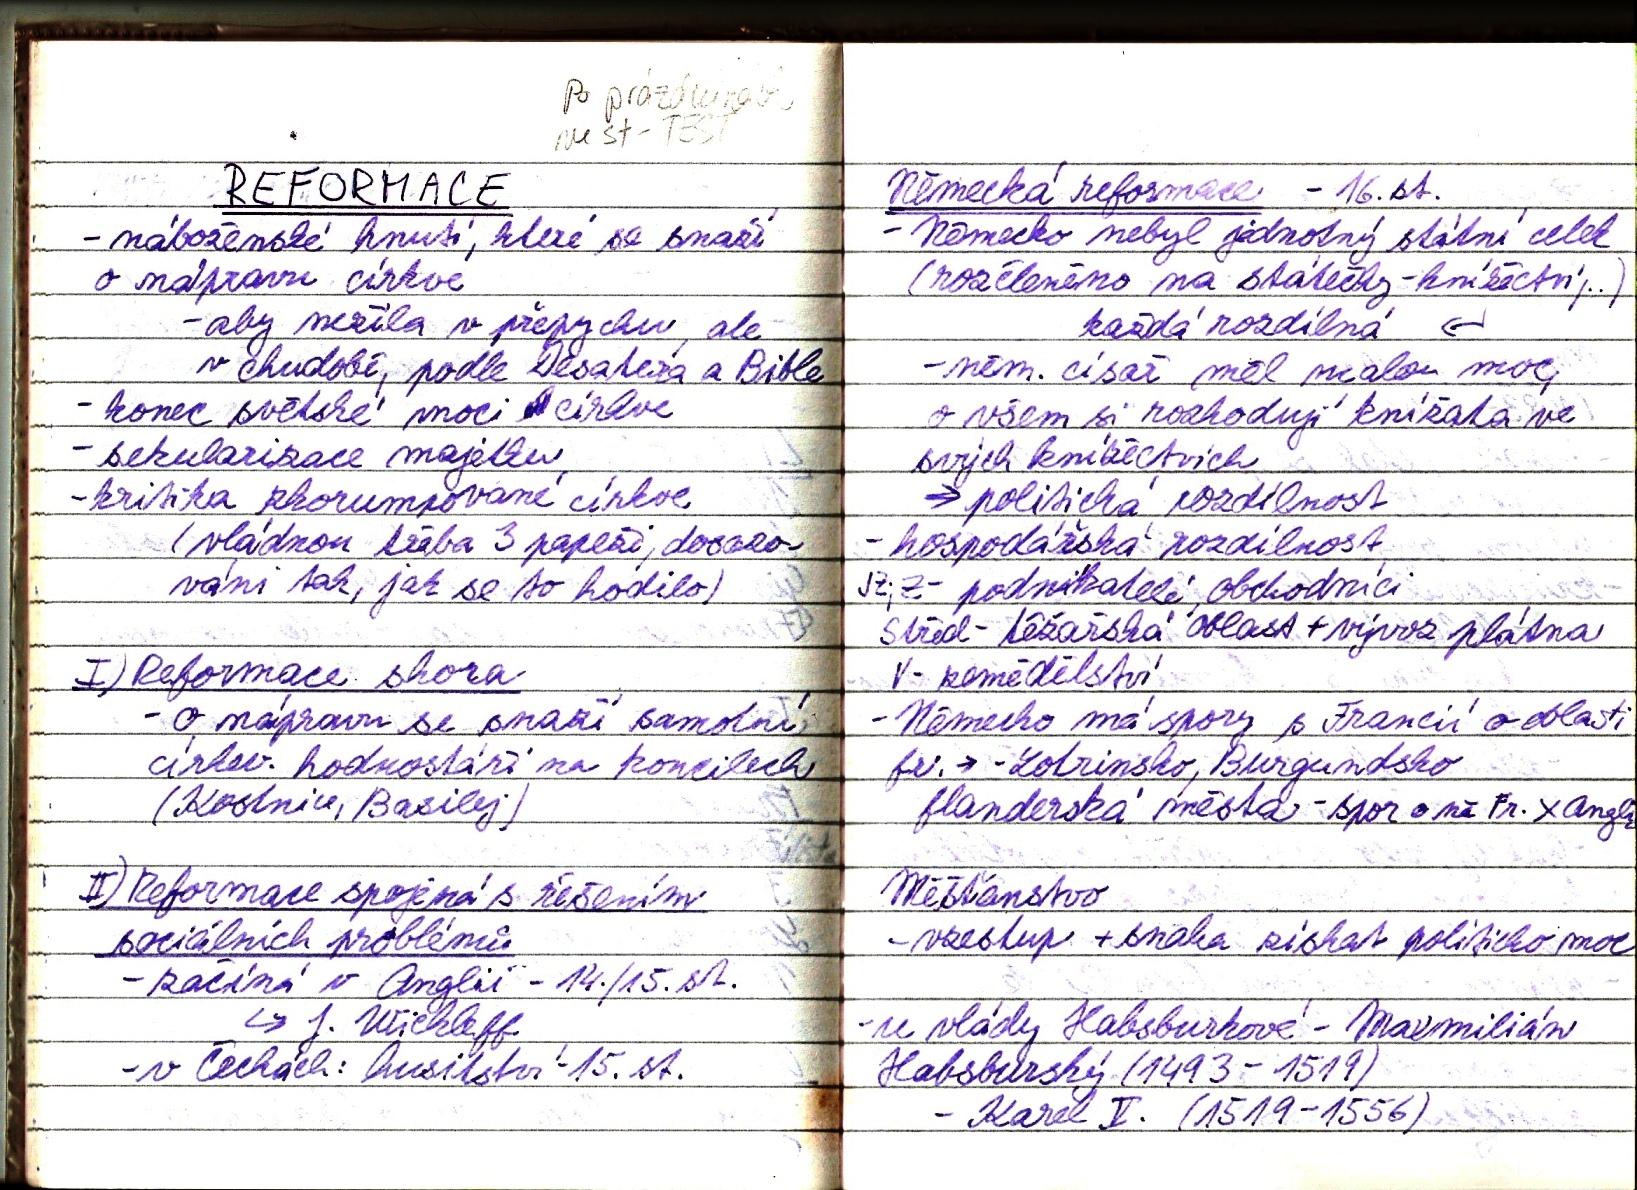 Po prázdninách
ve st - TEST
REFORMACE
- náboženské hnutí, které se snaží
o nápravu církve
- aby nežila v přepychu, ale
v chudobě, podle Desatera a Bible
- konec světské moci církve
- sekularizace majetku
- kritika zkorumpované církve
(vládnou třeba 3 papeži, dosazo-
váni tak, jak se to hodilo)
I) Reformace shora
- o nápravu se snaží samotní
církev. hodnostáři na koncilech
(Kostnice, Basilej)
II) Reformace spojená s řešením
sociálních problémů
- začíná v Anglii - 14./15. st.
↳ J. Wickleff
- v Čechách: husitství - 15. st.
Německá reformace - 16. st.
- Německo nebyl jednotný státní celek
(rozčleněno na státečky - knížectví,..)
každá rozdílná ↵
- něm. císař měl malou moc,
o všem si rozhodují knížata ve
svých knížectvích
→ politická rozdílnost
- hospodářská rozdílnost
JZ, Z - podnikatelé, obchodníci
Střed - těžařská oblast + vývoz plátna
V - zemědělství
- Německo má spory s Francií o oblasti
fr. → - Lotrinsko, Burgundsko
flanderská města - spor o ně Fr. X Anglie
Měšťanstvo
- vzestup + snaha získat politickо moc
- u vlády Habsburkové - Maxmilián
Habsburský (1493 - 1519)
- Karel V. (1519 - 1556)